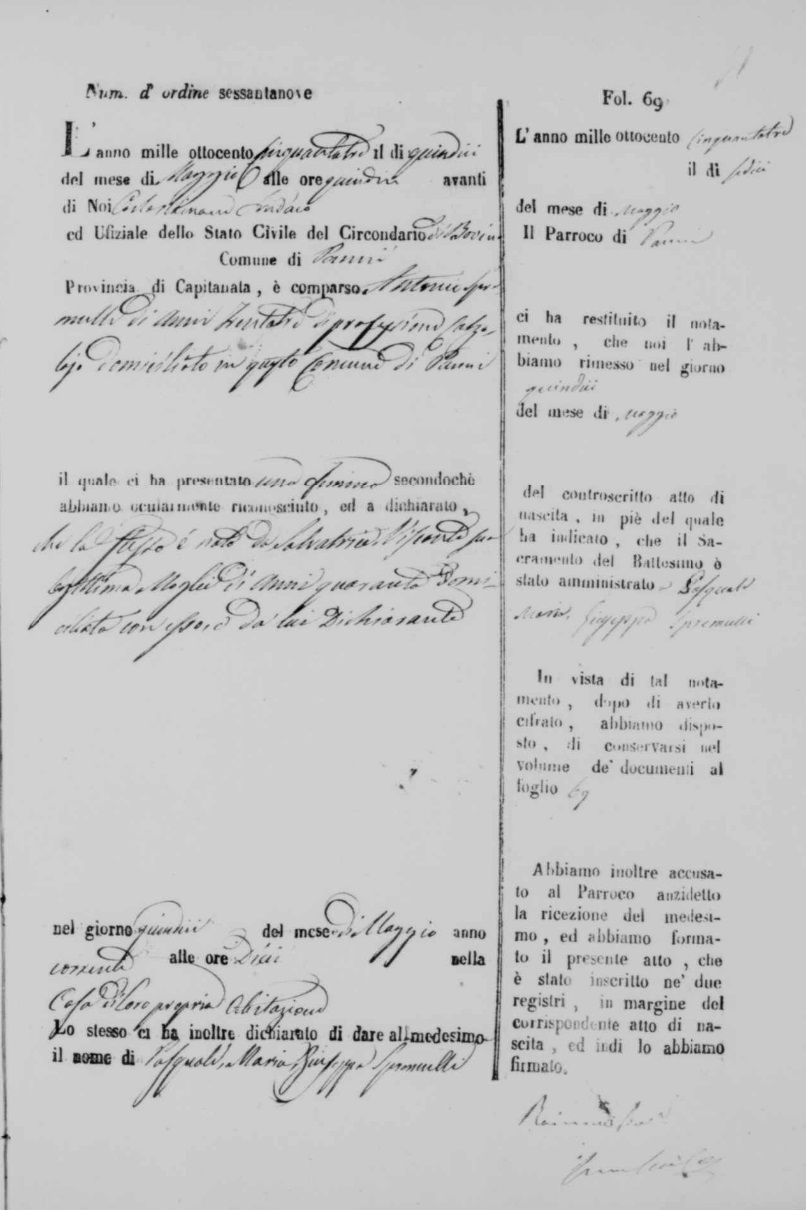 Num. d' ordine sessantanove
L' anno mille ottocento cinquantatre il di quindici
del mese di Maggio alle ore quindici avanti
di Noi Sindaco
ed Ufiziale dello Stato Civile del Circondario di Bovino
Comune di Panni
Provincia di Capitanata , è comparso Antonio Spre-
mulli di anni trentatre di professione calzo-
lajo domiciliato in questo Comune di Panni
il quale ci ha presentato una femina secondochè
abbiamo ocularmente riconosciuto , ed a dichiarato ,
che la stessa è nata da Salvatrice Visconte sua
legittima Moglie di anni quaranta Domi-
ciliata con esso e da lui Dichiarante
nel giorno quindici del mese di Maggio anno
corrente alle ore Dieci nella
Casa di loro propria Abitazione
Lo stesso ci ha inoltre dichiarato di dare all medesimo
il nome di Pasquale Maria Giuseppa Spremulli
Fol. 69
L' anno mille ottocento cinquantatre
il di sedici
del mese di maggio
Il Parroco di Panni
ci ha restituito il nota-
mento , che noi l' ab-
biamo rimesso nel giorno
quindici
del mese di maggio
del controscritto atto di
nascita , in piè del quale
ha indicato , che il Sa-
cramento del Battesimo è
stato amministrato a Pasquale
Maria Giuseppa Spremulli
In vista di tal nota-
mento , dopo di averlo
cifrato , abbiamo dispo-
sto , di conservarsi nel
volume de' documenti al
foglio 69
Abbiamo inoltre accusa-
to al Parroco anzidetto
la ricezione del medesi-
mo , ed abbiamo forma-
to il presente atto , che
è stato inscritto ne' due
registri , in margine del
corrispondente atto di na-
scita , ed indi lo abbiamo
firmato.